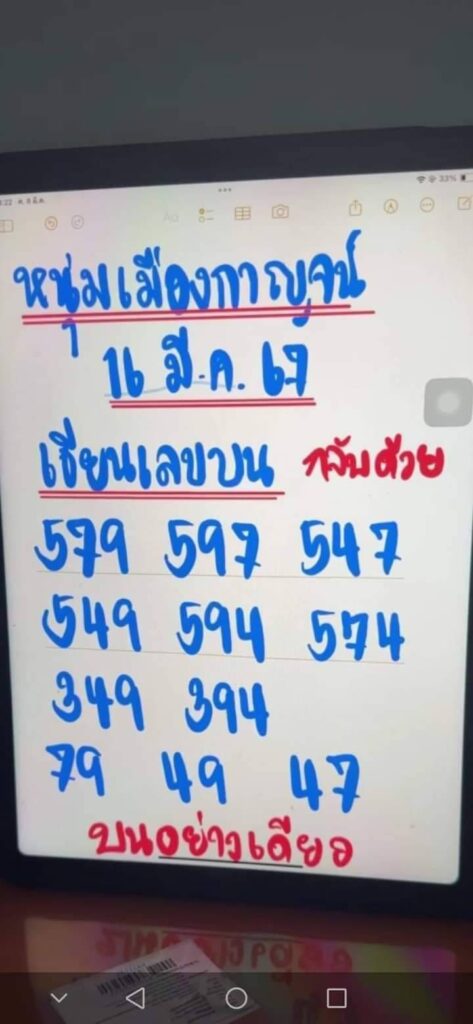 33%
หนุ่มเมืองกาญจน์
16 มี.ค. 67
เซียนเลขบน กลับด้วย
579 597 547
549 594 574
349 394
79 49 47
บนอย่างเดียว